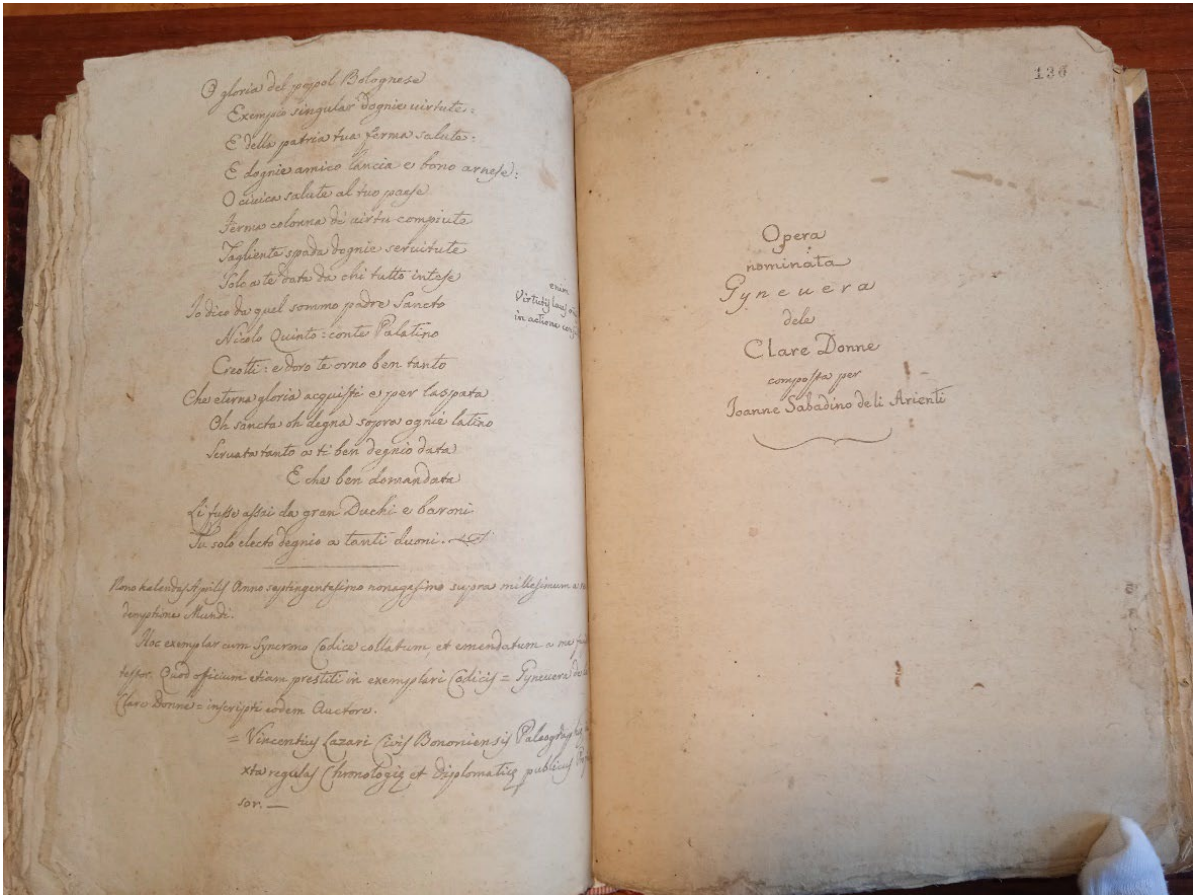 O gloria del popol Bolognese
Exempio singular dognie uirtute:
E della patria tua ferma salute:
E dognie amico lancia e bono arnese:
O ciuica salute al tuo paese
Ferma colonna di uirtu compiute
Tagliente spada dognie seruitute
Solo a te data da chi tutto intese
Io dico da quel sommo padre Sancto
Nicolo Quinto: conte Palatino
Creotti: e doro te orno ben tanto
Che eterna gloria acquisti e per la spata
Oh sancta oh degna sopra ognie latino
Seruata tanto a ti ben degnio data
E che ben domandata
Li fusse assai da gran Duchi e baroni
Tu solo electo degnio a tanti duoni.
enim
Virtutis laus
in actione
Nono kalendas Aprilis Anno septingentesimo nonagesimo supra millesimum a
demptione Mundi.
Hoc exemplar cum Syncrono Codice collatum, et emendatum a me
testor. Quod officium etiam prestiti in exemplari Codicis = Gyneuera de
Clare Donne = inscripti eodem Auctore.
= Vincentius Lazari Civis Bononiensis Paleographie,
xta regulas Chronologię et Diplomatię publicus
sor. —
136
Opera
nominata
Gyneuera
dele
Clare Donne
composta per
Joanne Sabadino deli Arienti